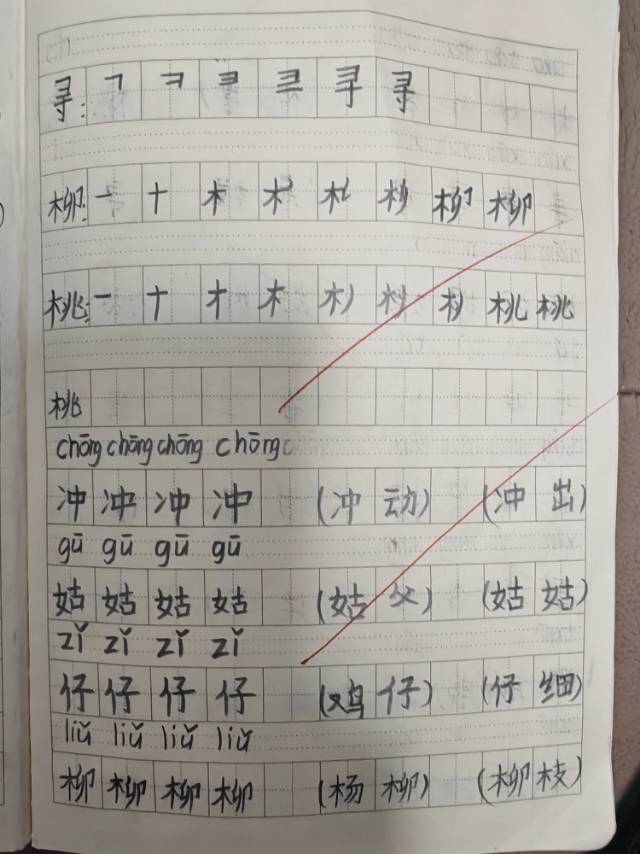 寻: 寻
柳: 一 十 木 柳
桃: 一 十 才 木 桃 桃
桃
chōng chōng chōng chōng
冲 冲 冲 冲 (冲 动) (冲 出)
gū gū gū gū
姑 姑 姑 姑 (姑 父) (姑 姑)
zǐ zǐ zǐ zǐ
仔 仔 仔 仔 (鸡 仔) (仔 细)
liǔ liǔ liǔ liǔ
柳 柳 柳 柳 (杨 柳) (柳 枝)